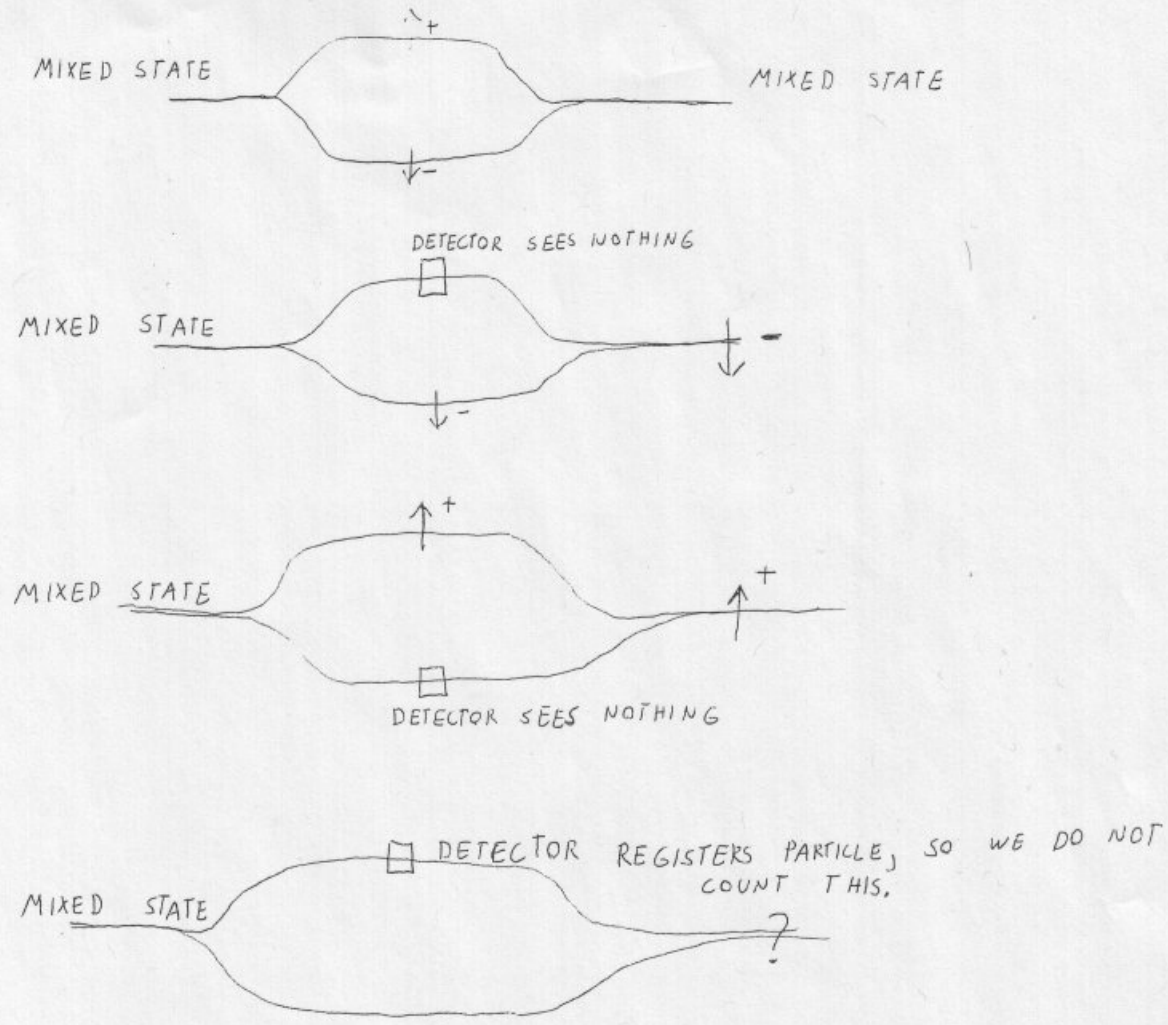 +
MIXED STATE
MIXED STATE
-
DETECTOR SEES NOTHING
MIXED STATE
-
-
+
MIXED STATE
+
DETECTOR SEES NOTHING
DETECTOR REGISTERS PARTICLE, SO WE DO NOT
COUNT THIS.
MIXED STATE
?